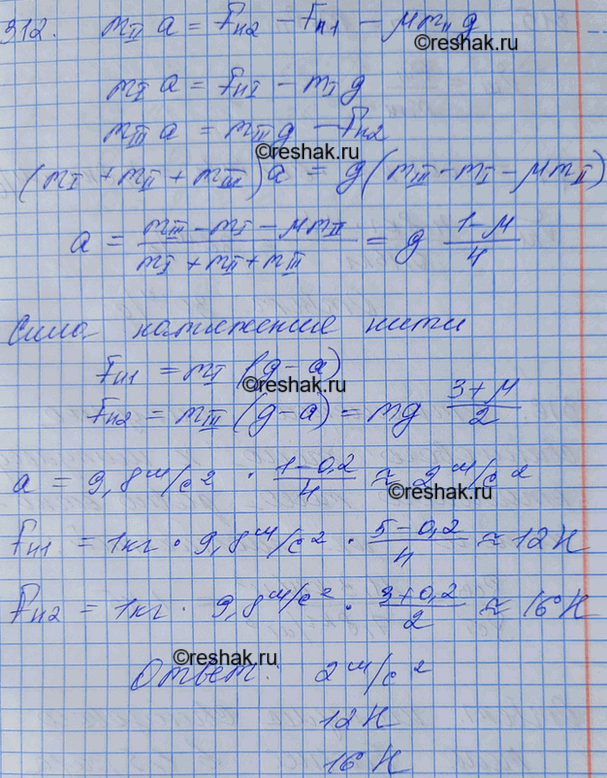 312. m_II a = F_н2 - F_н1 - μm_II g
©reshak.ru
m_I a = F_нI - m_I g
m_III a = m_III g - F_н2
©reshak.ru
(m_I + m_II + m_III) a = g (m_III - m_I - μm_II)
a = (m_III - m_I - μm_II) / (m_I + m_II + m_III) = g (1-μ)/4
Сила натяжения нити
F_н1 = m_I (g - a)
©reshak.ru
F_н2 = m_III (g - a) = mg (3+μ)/2
a = 9,8 м/с² · (1-0,2)/4 ≈ 2 м/с²
©reshak.ru
F_н1 = 1кг · 9,8 м/с² · (5-0,2)/4 ≈ 12 Н
F_н2 = 1кг · 9,8 м/с² · (3+0,2)/2 ≈ 16 Н
©reshak.ru
Ответ: 2 м/с²
12 Н
16 Н